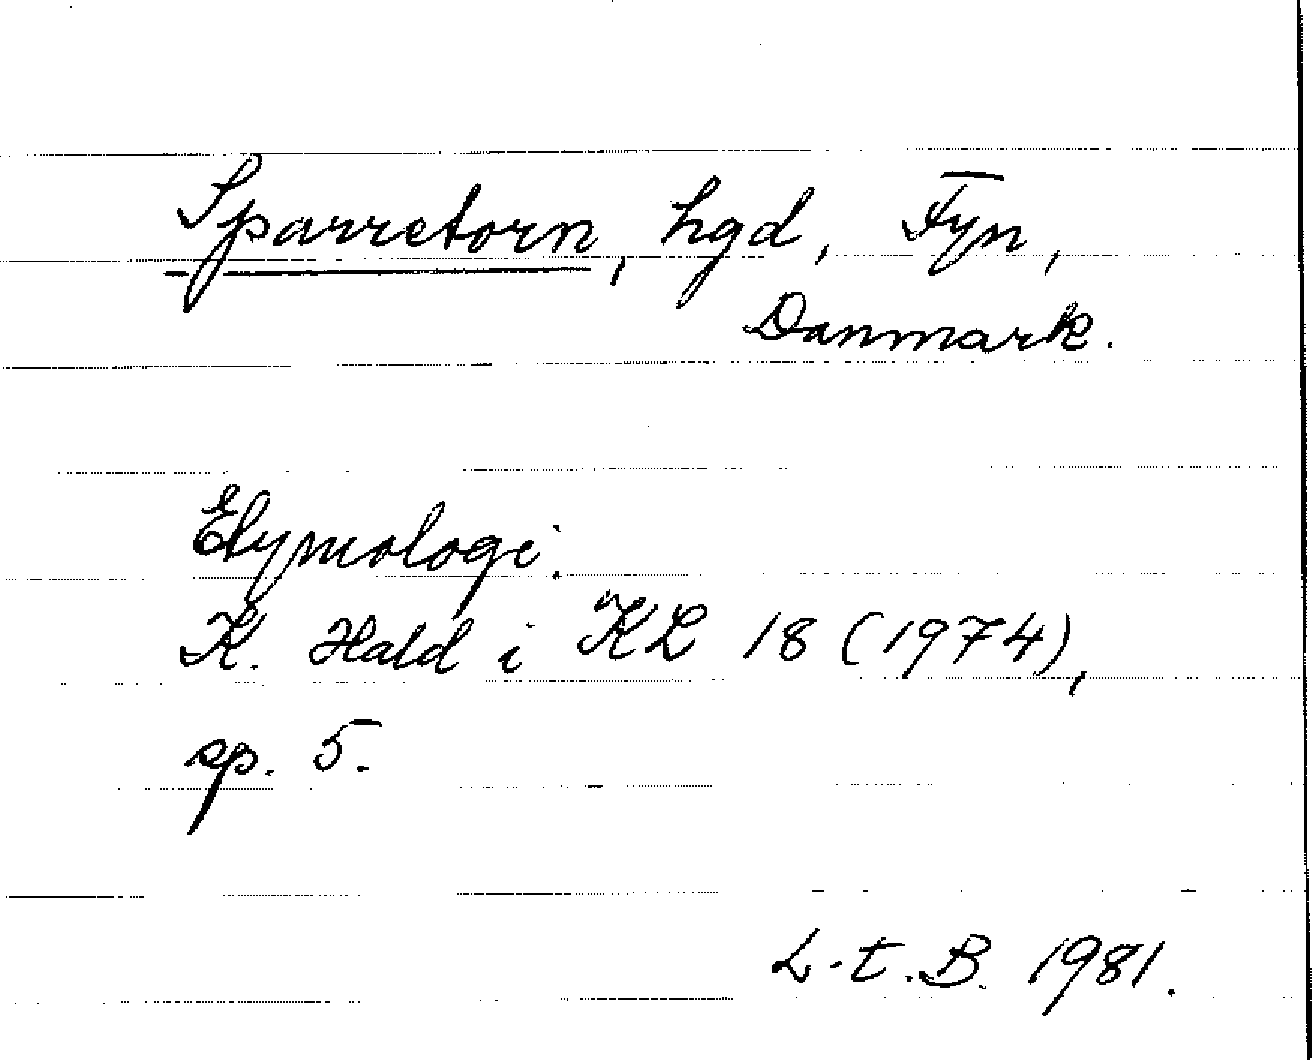 Sparretorn, hgd, Fyn,
Danmark.
Etymologi.
K. Hald i KL 18 (1974),
sp. 5.
L-t. B. 1981.